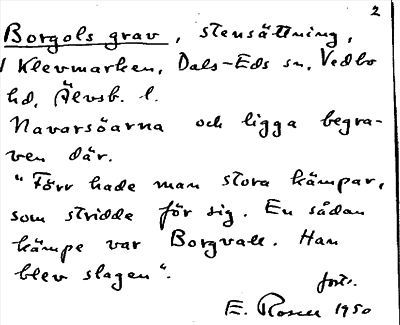 2
Borgols grav, stensättning,
i Klevmarken, Dals-Eds sn, Vedbo
hd, Älvsb. l.
Navarsöarna och ligga begra-
ven där.
"Förr hade man stora kämpar,
som stridde för sig. En sådan
kämpe var Borgvall. Han
blev slagen".
forts.
E. Rosell 1950